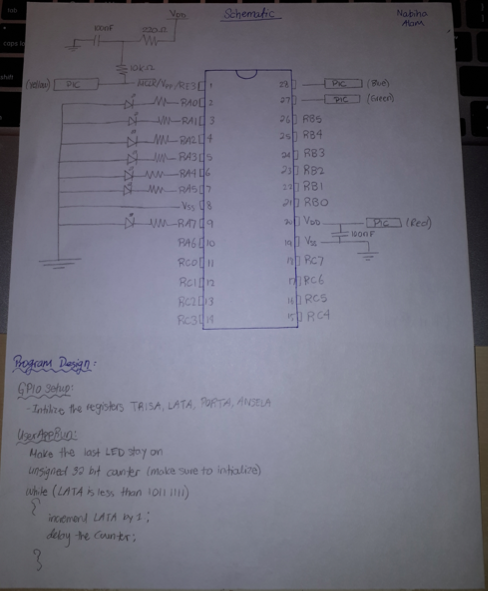 Schematic
Nabiha
Alam
VDD
100nF
220Ω
10kΩ
(Yellow) PIC MCLR/VPP/RE3 1
RA0 2
RA1 3
RA2 4
RA3 5
RA4 6
RA5 7
VSS 8
RA7 9
RA6 10
RC0 11
RC1 12
RC2 13
RC3 14
28 PIC (Blue)
27 PIC (Green)
26 RB5
25 RB4
24 RB3
23 RB2
22 RB1
21 RB0
20 VDD PIC (Red)
100nF
19 VSS
18 RC7
17 RC6
16 RC5
15 RC4
Program Design:
GPIO Setup:
- Intilize the registers TRISA, LATA, PORTA, ANSELA
UserAppRun:
Make the last LED stay on
unsigned 32 bit counter (make sure to initialize)
while (LATA is less than 1011 1111)
{
increment LATA by 1;
delay the counter;
}
tab
caps lo
shift